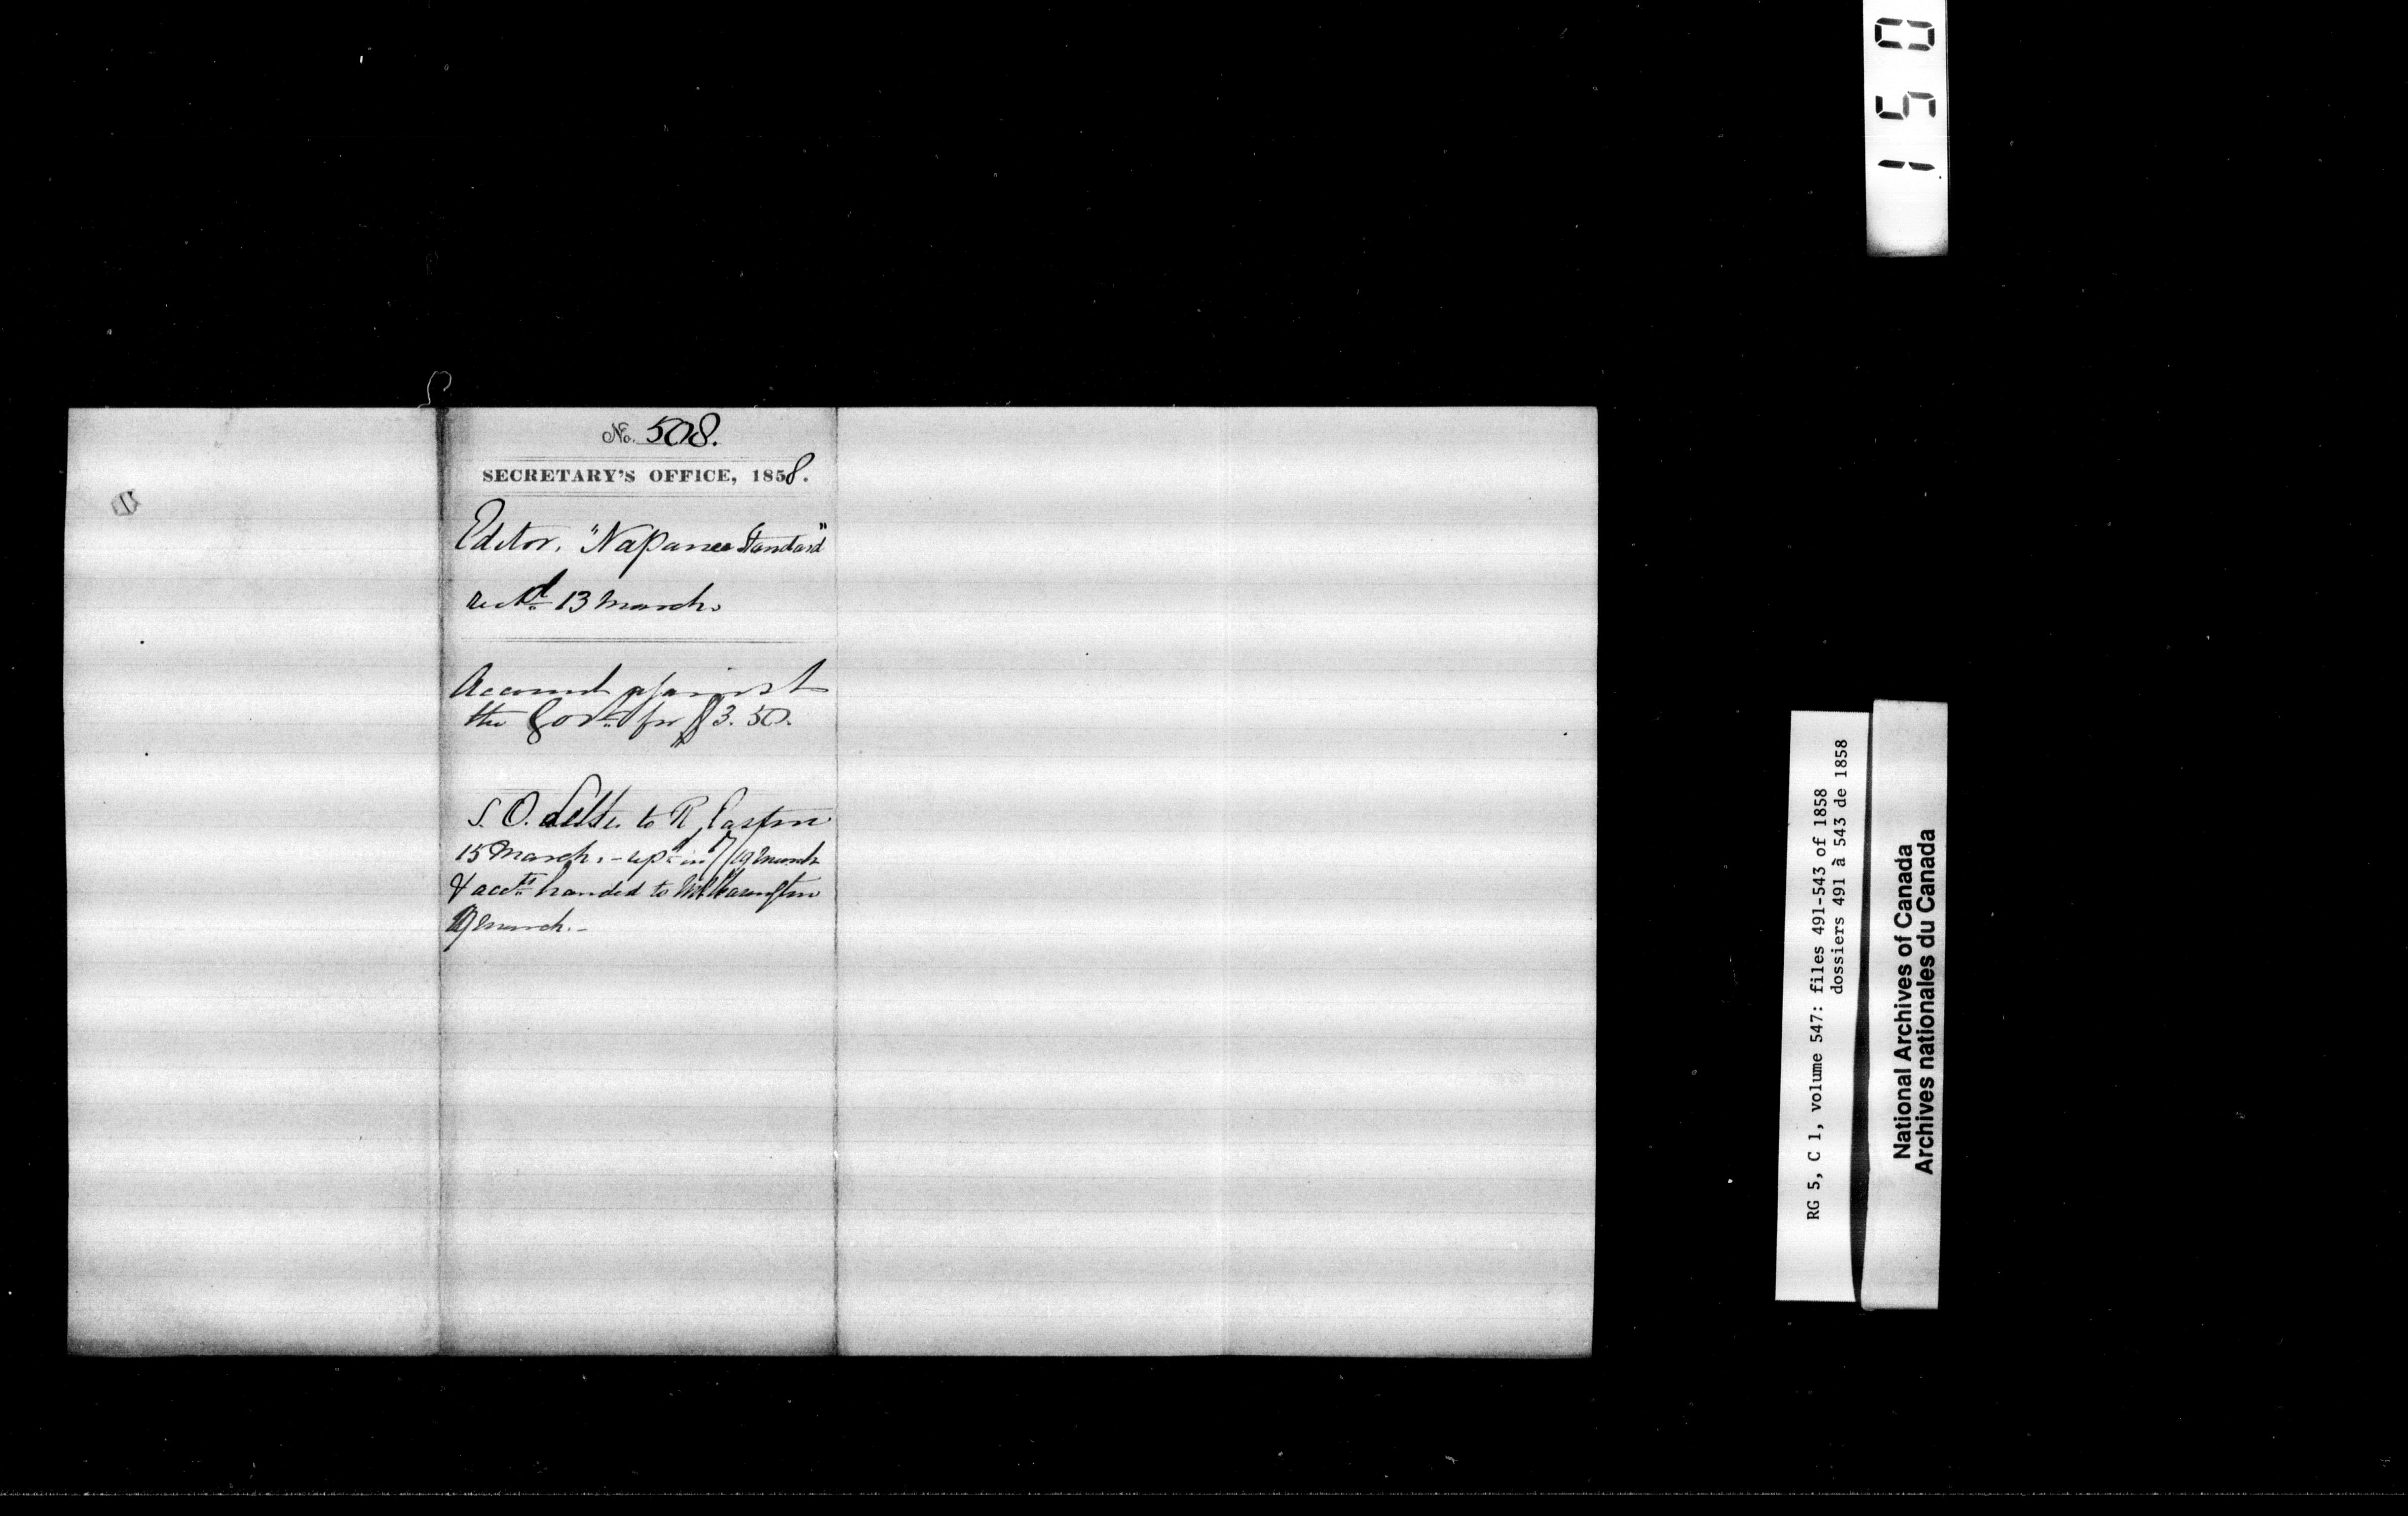 No. 508.
SECRETARY'S OFFICE, 1858.
Editor, "Napanee Standard"
recd. 13 March.
Account against
the Govt. for $3.50.
S. O. Letter to R
15 March. - in 17/19 March
& acct. handed to
19 March. -
150
RG 5, C 1, volume 547: files 491-543 of 1858
dossiers 491 à 543 de 1858
National Archives of Canada
Archives nationales du Canada